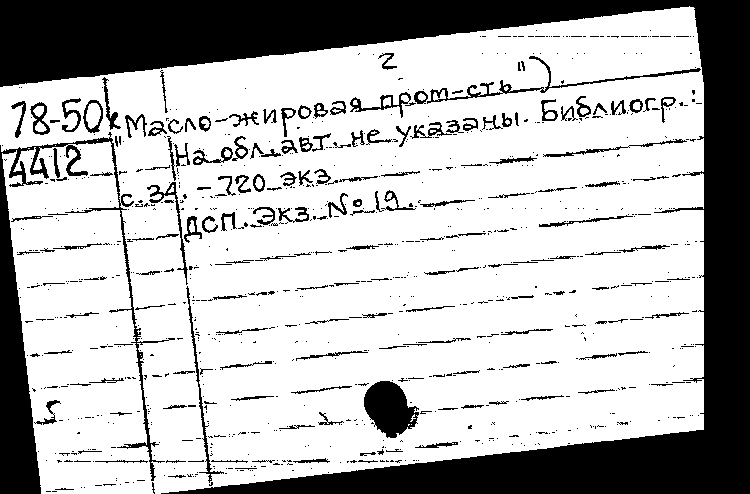 2
78-50к
4412
"Масло-жировая пром-сть").
На обл. авт. не указаны. Библиогр.:
с. 34. – 720 экз
ДСП. Экз. № 19.